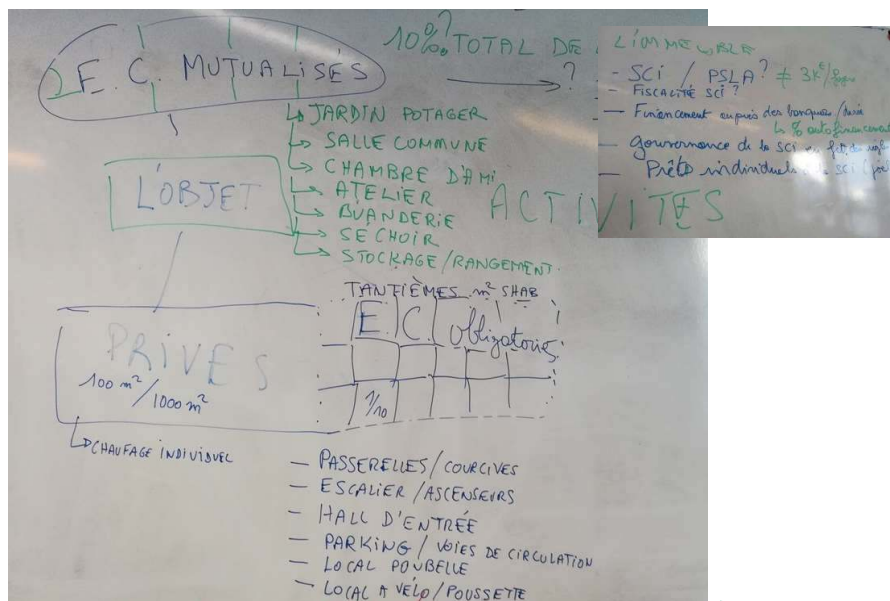 10%? TOTAL DE L'IMMEUBLE
E.C. MUTUALISÉS
?
JARDIN POTAGER
SALLE COMMUNE
CHAMBRE D'AMI
ATELIER
BUANDERIE
SÉCHOIR
STOCKAGE/RANGEMENT
ACTIVITÉS
- SCI / PSLA? ≠ 3K€/
- FISCALITÉ SCI?
- Financement auprès des banques/
% autofinancement
- Gouvernance de la SCI
- Prêts individuels SCI
L'OBJET
TANTIÈMES m² SHAB
E. C. obligatoires
PRIVÉS
100 m²/1000 m²
1/10
CHAUFAGE INDIVIDUEL
- PASSERELLES/COURCIVES
- ESCALIER/ASCENSEURS
- HALL D'ENTRÉE
- PARKING/VOIES DE CIRCULATION
- LOCAL POUBELLE
- LOCAL A VÉLO/POUSSETTE